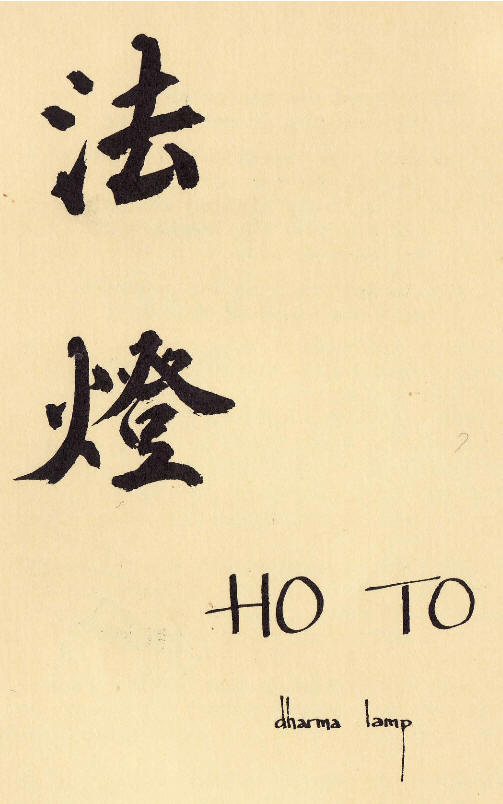 法
燈
HO TO
dharma lamp